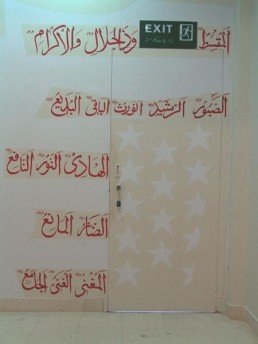 EXIT
المقسط وذالجلال والأكرام
الصبور الرشيد الوارث الباقي البديع
الهادى النور النافع
الضار المانع
المغنى الغنى الجامع